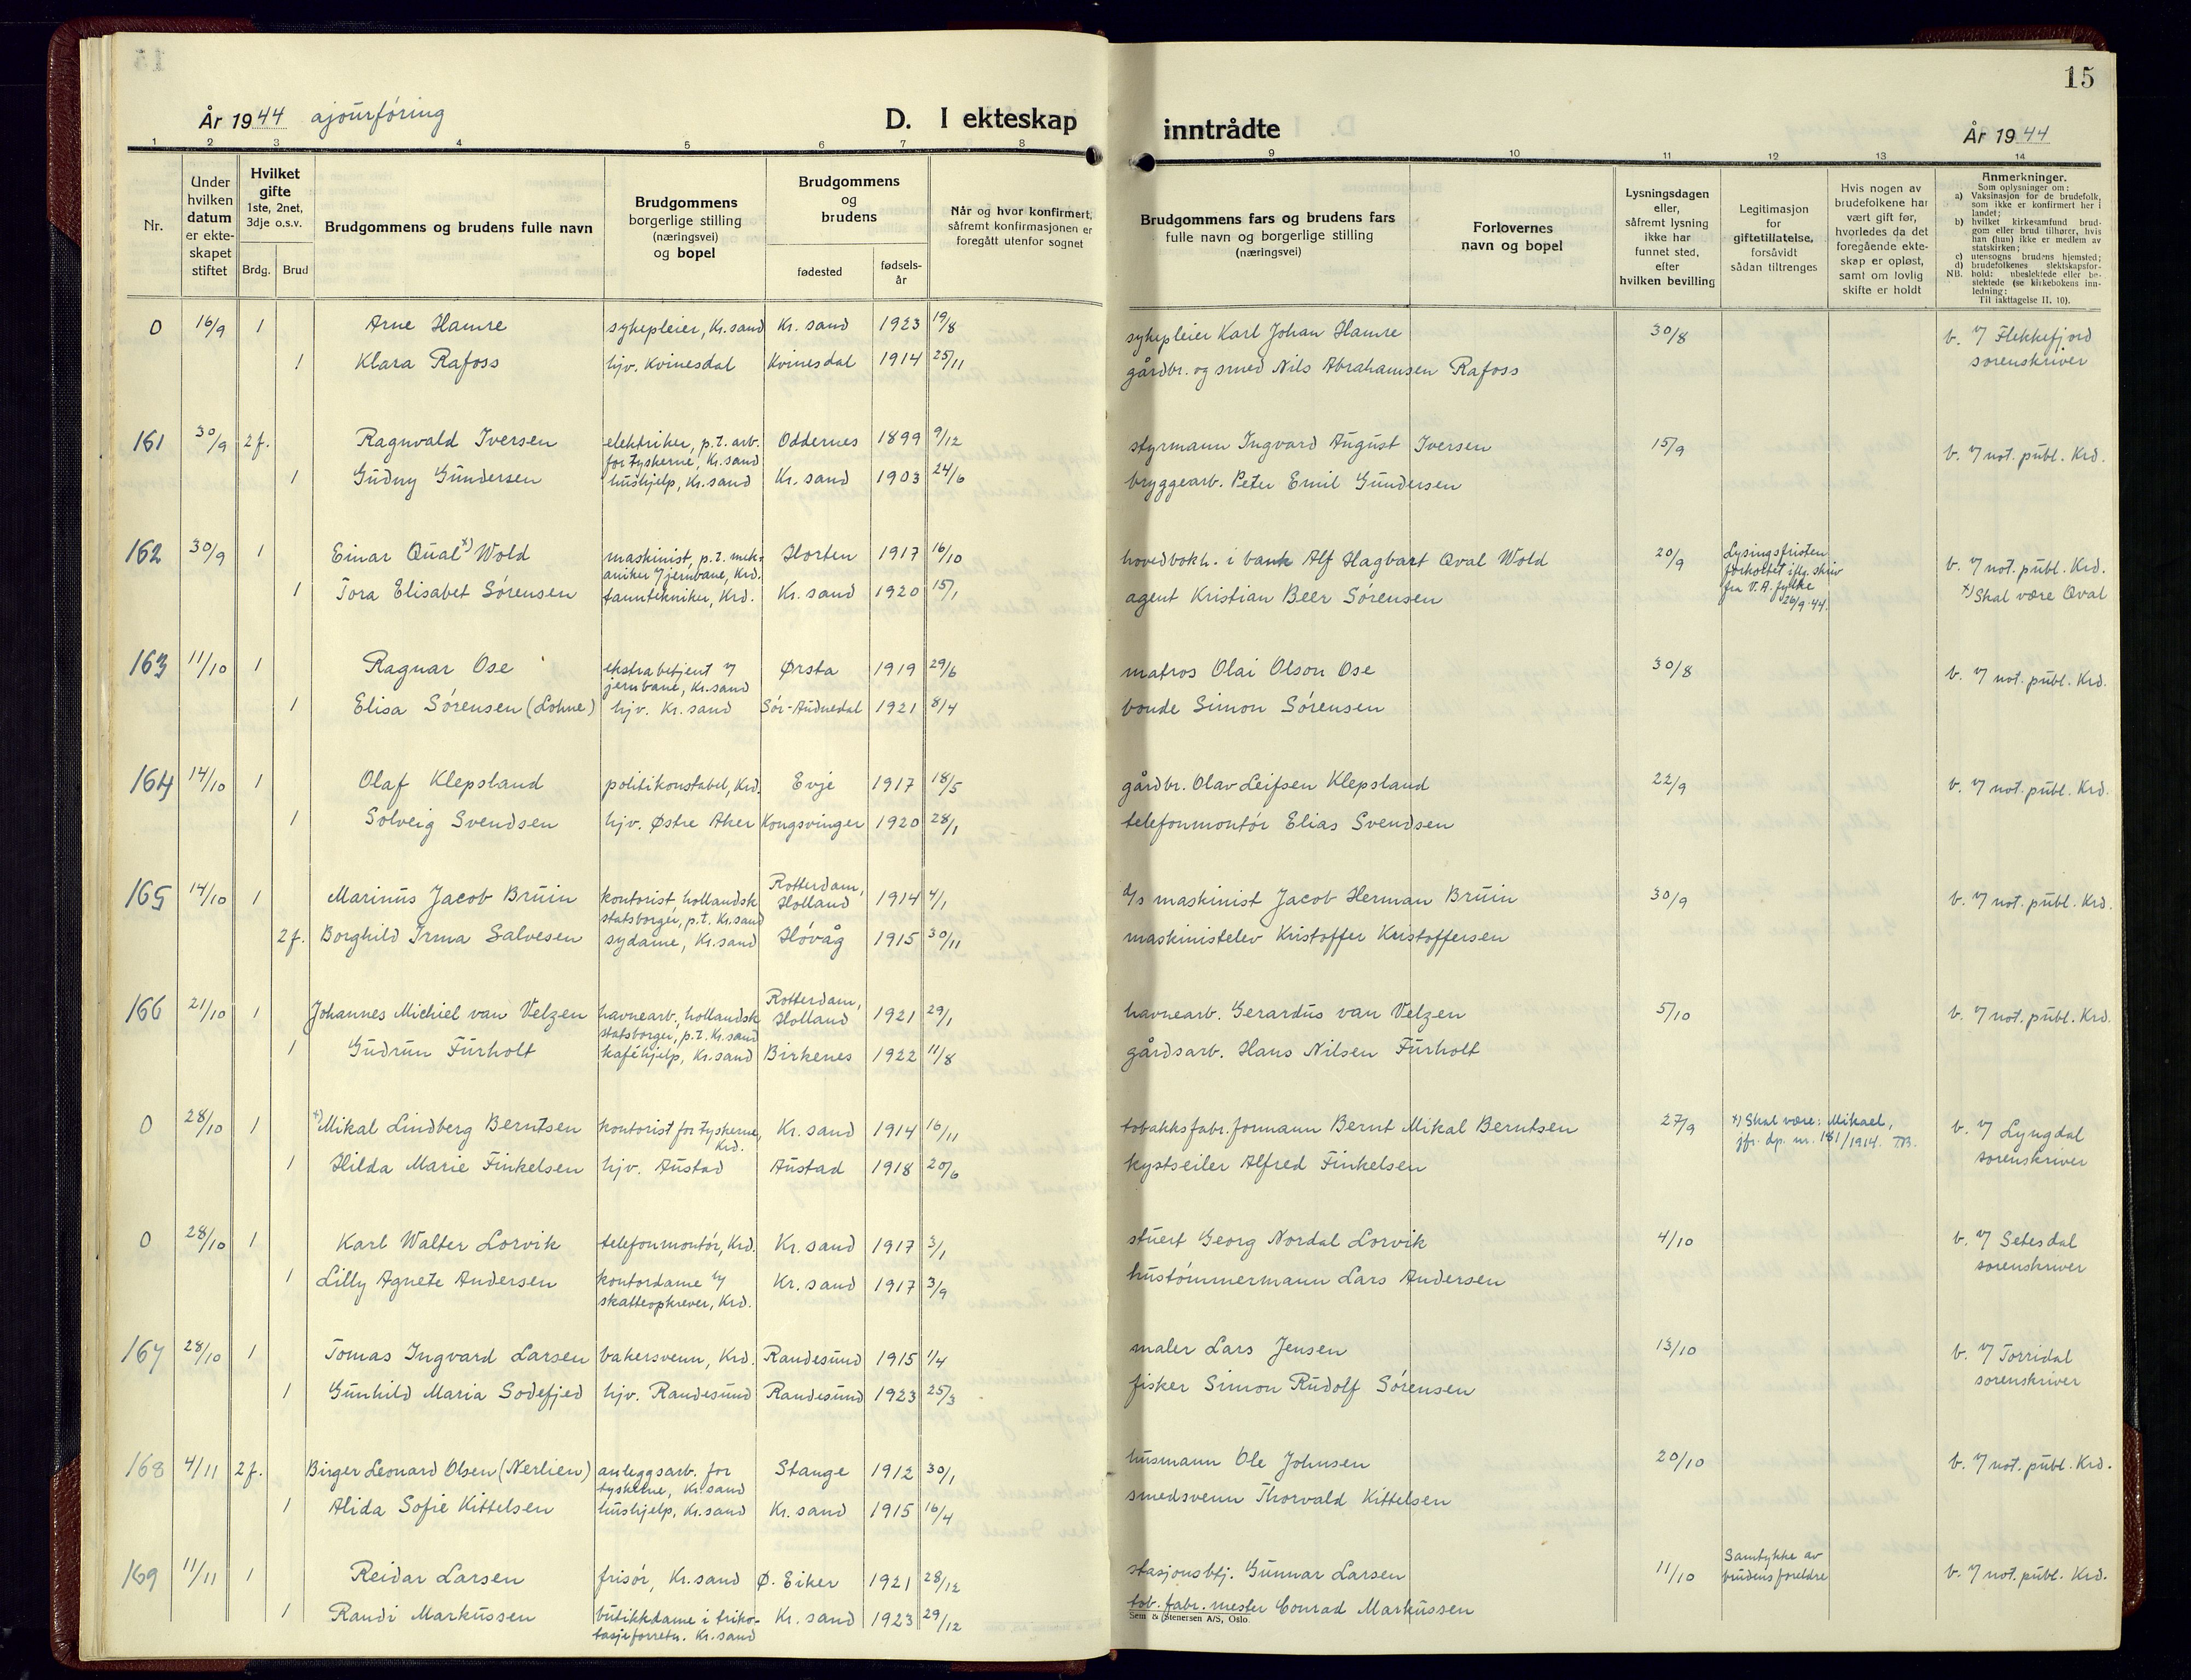 15
År 1944 ajourføring
D. I ekteskap
inntrådte
År 1944
1 2 3 4 5 6 7 8 9 10 11 12 13 14
Nr.
Under hvilken datum er ekte-skapet stiftet
Hvilket gifte 1ste, 2net, 3dje o.s.v.
Brdg. Brud
Brudgommens og brudens fulle navn
Brudgommens borgerlige stilling (næringsvei) og bopel
Brudgommens og brudens
fødested
fødsels-år
Når og hvor konfirmert, såfremt konfirmasjonen er foregått utenfor sognet
Brudgommens fars og brudens fars fulle navn og borgerlige stilling (næringsvei)
Forlovernes navn og bopel
Lysningsdagen eller, såfremt lysning ikke har funnet sted, efter hvilken bevilling
Legitimasjon for giftetillatelse, forsåvidt sådan tiltrenges
Hvis nogen av brudefolkene har vært gift før, hvorledes da det foregående ekte-skap er opløst, samt om lovlig skifte er holdt
Anmerkninger.
Som oplysninger om:
a) Vaksinasjon for de brudefolk, som ikke er konfirmert her i landet;
b) hvilket kirkesamfund brud-gom eller brud tilhører, hvis han (hun) ikke er medlem av statskirken;
c) utensogns brudens hjemsted;
d) brudefolkenes slektskapsfor-hold: ubeslektede eller be-slektede (se kirkebokens inn-ledning:
NB. Til iakttagelse II, 10).
0 16/9 1 Arne Hamre sykepleier, Kr.sand Kr. sand 1923 19/8 sykepleier Karl Johan Hamre 30/8 b. v/ Flekkefjord
1 Klara Rafoss hjv. Kvinesdal Kvinesdal 1914 25/11 gårdbr. og smed Nils Abrahamsen Rafoss sorenskriver
161 30/9 2f. Ragnvald Iversen elektriker, p.t. arb. for tyskerne, Kr.sand Oddernes 1899 9/12 styrmann Ingvard August Iversen 15/9 b. v/ not. publ. Krd.
1 Gudny Gundersen hushjelp, Kr.sand Kr. sand 1903 24/6 bryggearb. Peter Emil Gundersen
162 30/9 1 Einar Qual x) Wold maskinist, p.t. mek-aniker v/ jernbane, Krd. Horten 1917 16/10 hovedbokh. i bank Alf Hagbart Qval Wold 20/9 Lysingsfristen forkortet iflg. skriv fra V.A. fylke 26/9-44. b. v/ not. publ. Krd.
1 Tora Elisabet Sørensen tanntekniker, Krd. Kr. sand 1920 15/1 agent Kristian Beer Sørensen x) Skal være Qval
163 11/10 1 Ragnar Ose ekstrabetjent v/ jernbane, Kr.sand Ørsta 1919 29/6 matros Olai Olson Ose 30/8 b. v/ not. publ. Krd.
1 Elisa Sørensen (Lohne) hjv. Kr. sand Sør-Audnedal 1921 8/4 bonde Simon Sørensen
164 14/10 1 Olaf Klepsland politikonstabel, Krd. Evje 1917 18/5 gårdbr. Olav Leifsen Klepsland 22/9 b. v/ not. publ. Krd.
1 Solveig Svendsen hjv. Østre Aker Kongsvinger 1920 28/1 telefonmontør Elias Svendsen
165 14/10 1 Marinus Jacob Bruin kontorist, hollandsk statsborger, p.t. Kr.sand Rotterdam, Holland 1914 4/1 d/s maskinist Jacob Herman Bruin 30/9 b. v/ not. publ. Krd.
2f. Borghild Irma Salvesen sydame, Kr.sand Høvåg 1915 30/11 maskinistelev Kristoffer Kristoffersen
166 21/10 1 Johannes Michiel van Velzen havnearb, hollandsk statsborger, p.t. Kr.sand Rotterdam, Holland 1921 29/1 havnearb. Gerardus van Velzen 5/10 b. v/ not. publ. Krd.
1 Gudrun Furholt kaféhjelp, Kr.sand Birkenes 1922 11/8 gårdsarb. Hans Nilsen Furholt
0 28/10 1 x) Mikal Lindberg Berntsen kontorist for tyskerne, Krd. Kr. sand 1914 16/11 tobakksfabr.formann Bernt Mikal Berntsen 27/9 x) Skal være: Mikael, jfr. dp. nr. 181/1914. TB. b. v/ Lyngdal
1 Hilda Marie Finkelsen hjv. Austad Austad 1918 20/6 kystseiler Alfred Finkelsen sorenskriver
0 28/10 1 Karl Walter Lorvik telefonmontør, Krd. Kr. sand 1917 3/1 stuert Georg Nordal Lorvik 4/10 b. v/ Setesdal
1 Lilly Agnete Andersen kontordame v/ skatteopkrever, Krd. Kr. sand 1917 3/9 hustømmermann Lars Andersen sorenskriver
167 28/10 1 Tomas Ingvard Larsen bakersvenn, Krd. Randesund 1915 1/4 maler Lars Jensen 13/10 b. v/ Torridal
1 Gunhild Maria Sodefjed hjv. Randesund Randesund 1923 25/3 fisker Simon Rudolf Sørensen sorenskriver
168 4/11 2f. Birger Leonard Olsen (Nerlien) anleggsarb. for tyskerne, Kr.sand Stange 1912 30/1 husmann Ole Johnsen 20/10 b. v/ not. publ. Krd.
1 Alida Sofie Kittelsen hushjelp, Kr.sand Kr. sand 1915 16/4 smedsvenn Thorvald Kittelsen
169 11/11 1 Reidar Larsen frisør, Kr.sand Ø. Eiker 1921 28/12 stasjonsbtj. Gunnar Larsen 11/10 Samtykke av brudens foreldre b. v/ not. publ. Krd.
1 Randi Markussen butikkdame i triko-tasjeforretn. Kr.sand Kr. sand 1923 29/12 tob. fabr. mester Conrad Markussen
Sem & Stenersen A/S, Oslo.